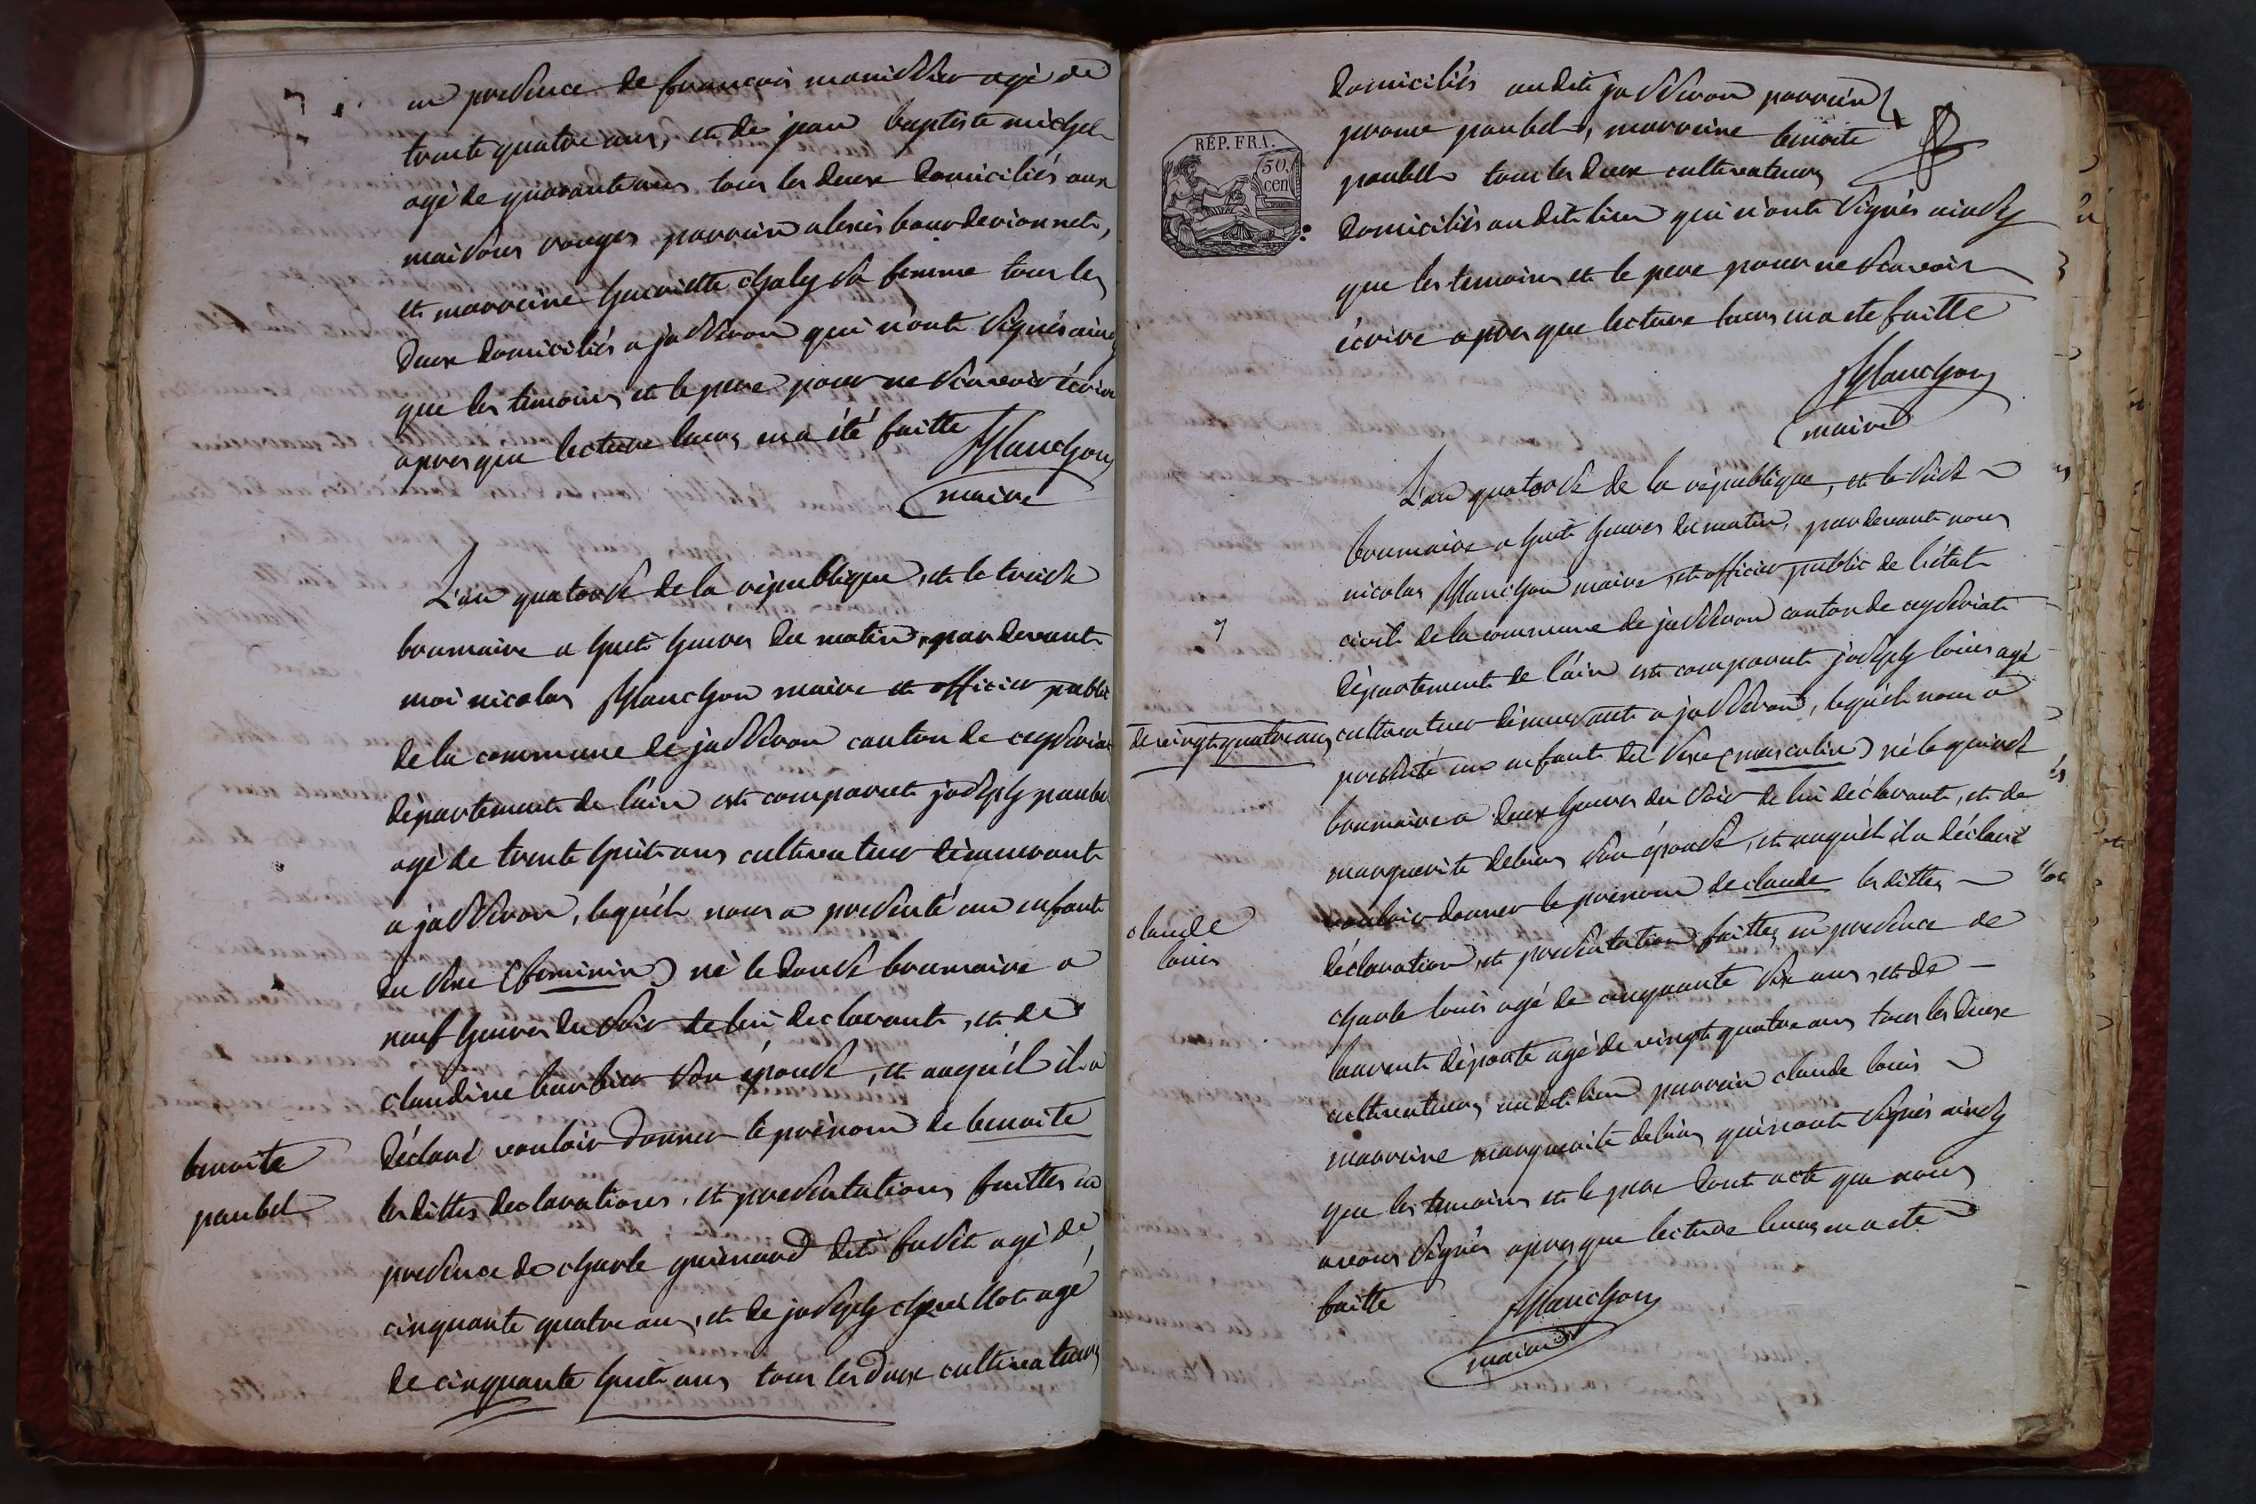 en presence de francois manissier agé de
trente quatre ans, et de jean baptiste michel
agé de quarante ans tous les deux domiciliés aux
maisons rouges parrein alexis bourdevionnet,
et marreine henriette chaly sa femme tous les
deux domiciliés a jasseron qui n'ont signés ainsy
que les temoins et le pere pour ne scavoir écrire
apres que lecture leurs en a été faitte
Planchon
maire
L'an quatorse de la république, et le treise
brumaire a huit heures du matin, pardevant
moi nicolas Planchon maire et officier public
de la commune de jasseron canton de ceyseriat
département de l'ain est comparut joseph paubel
agé de trente huit ans cultivateur démeurant
a jasseron, lequél nous a presenté un enfant
du sexe (feminin) né le douse brumaire a
neuf heures du soir de lui declarant, et de
claudine barbier son épouse, et auquél il a
déclaré vouloir donner le prénom de benoite
benoite
paubel
les dittes declarations, et presentations faittes en
presence de charle guénard dit fusit agé de
cinquante quatre ans, et de joseph chevillot agé
de cinquante huit ans tous les deux cultivateurs
domiciliés audit jasseron parrein
RÉP. FRA.
50 cen
jerome paubel, marreine benoite
paubel tous les deux cultivateurs
domiciliés audit lieu qui n'ont signés ainsy
que les temoins et le pere pour ne scavoir
écrire apres que lecture leurs en a ete faitte
Planchon
maire
L'an quatorse de la république, et le seise
brumaire a huit heures du matin, pardevant nous
nicolas Planchon maire, et officier public de l'état
civil de la commune de jasseron canton de ceyseriat
département de l'ain est comparut joseph louis agé
de vingt quatre ans
cultivateur démeurant a jasseron, lequél nous a
presenté un enfant du sexe (masculin) né le quinse
brumaire a deux heures du soir de lui déclarant, et de
marguerite debias son épouse, et auquél il a déclaré
vouloir donner le prénom de claude les dittes
claude
louis
déclaration, et presentation faittes en presence de
charle louis agé de cinquante six ans, et de
laurent déporte agé de vingt quatre ans tous les deux
cultivateurs audit lieu parrein claude louis
marreine marguerite debias qui n'ont signés ainsy
que les temoins et le pere dont acte que nous
avons signés apres que lecture leurs en a ete
faitte
Planchon
maire